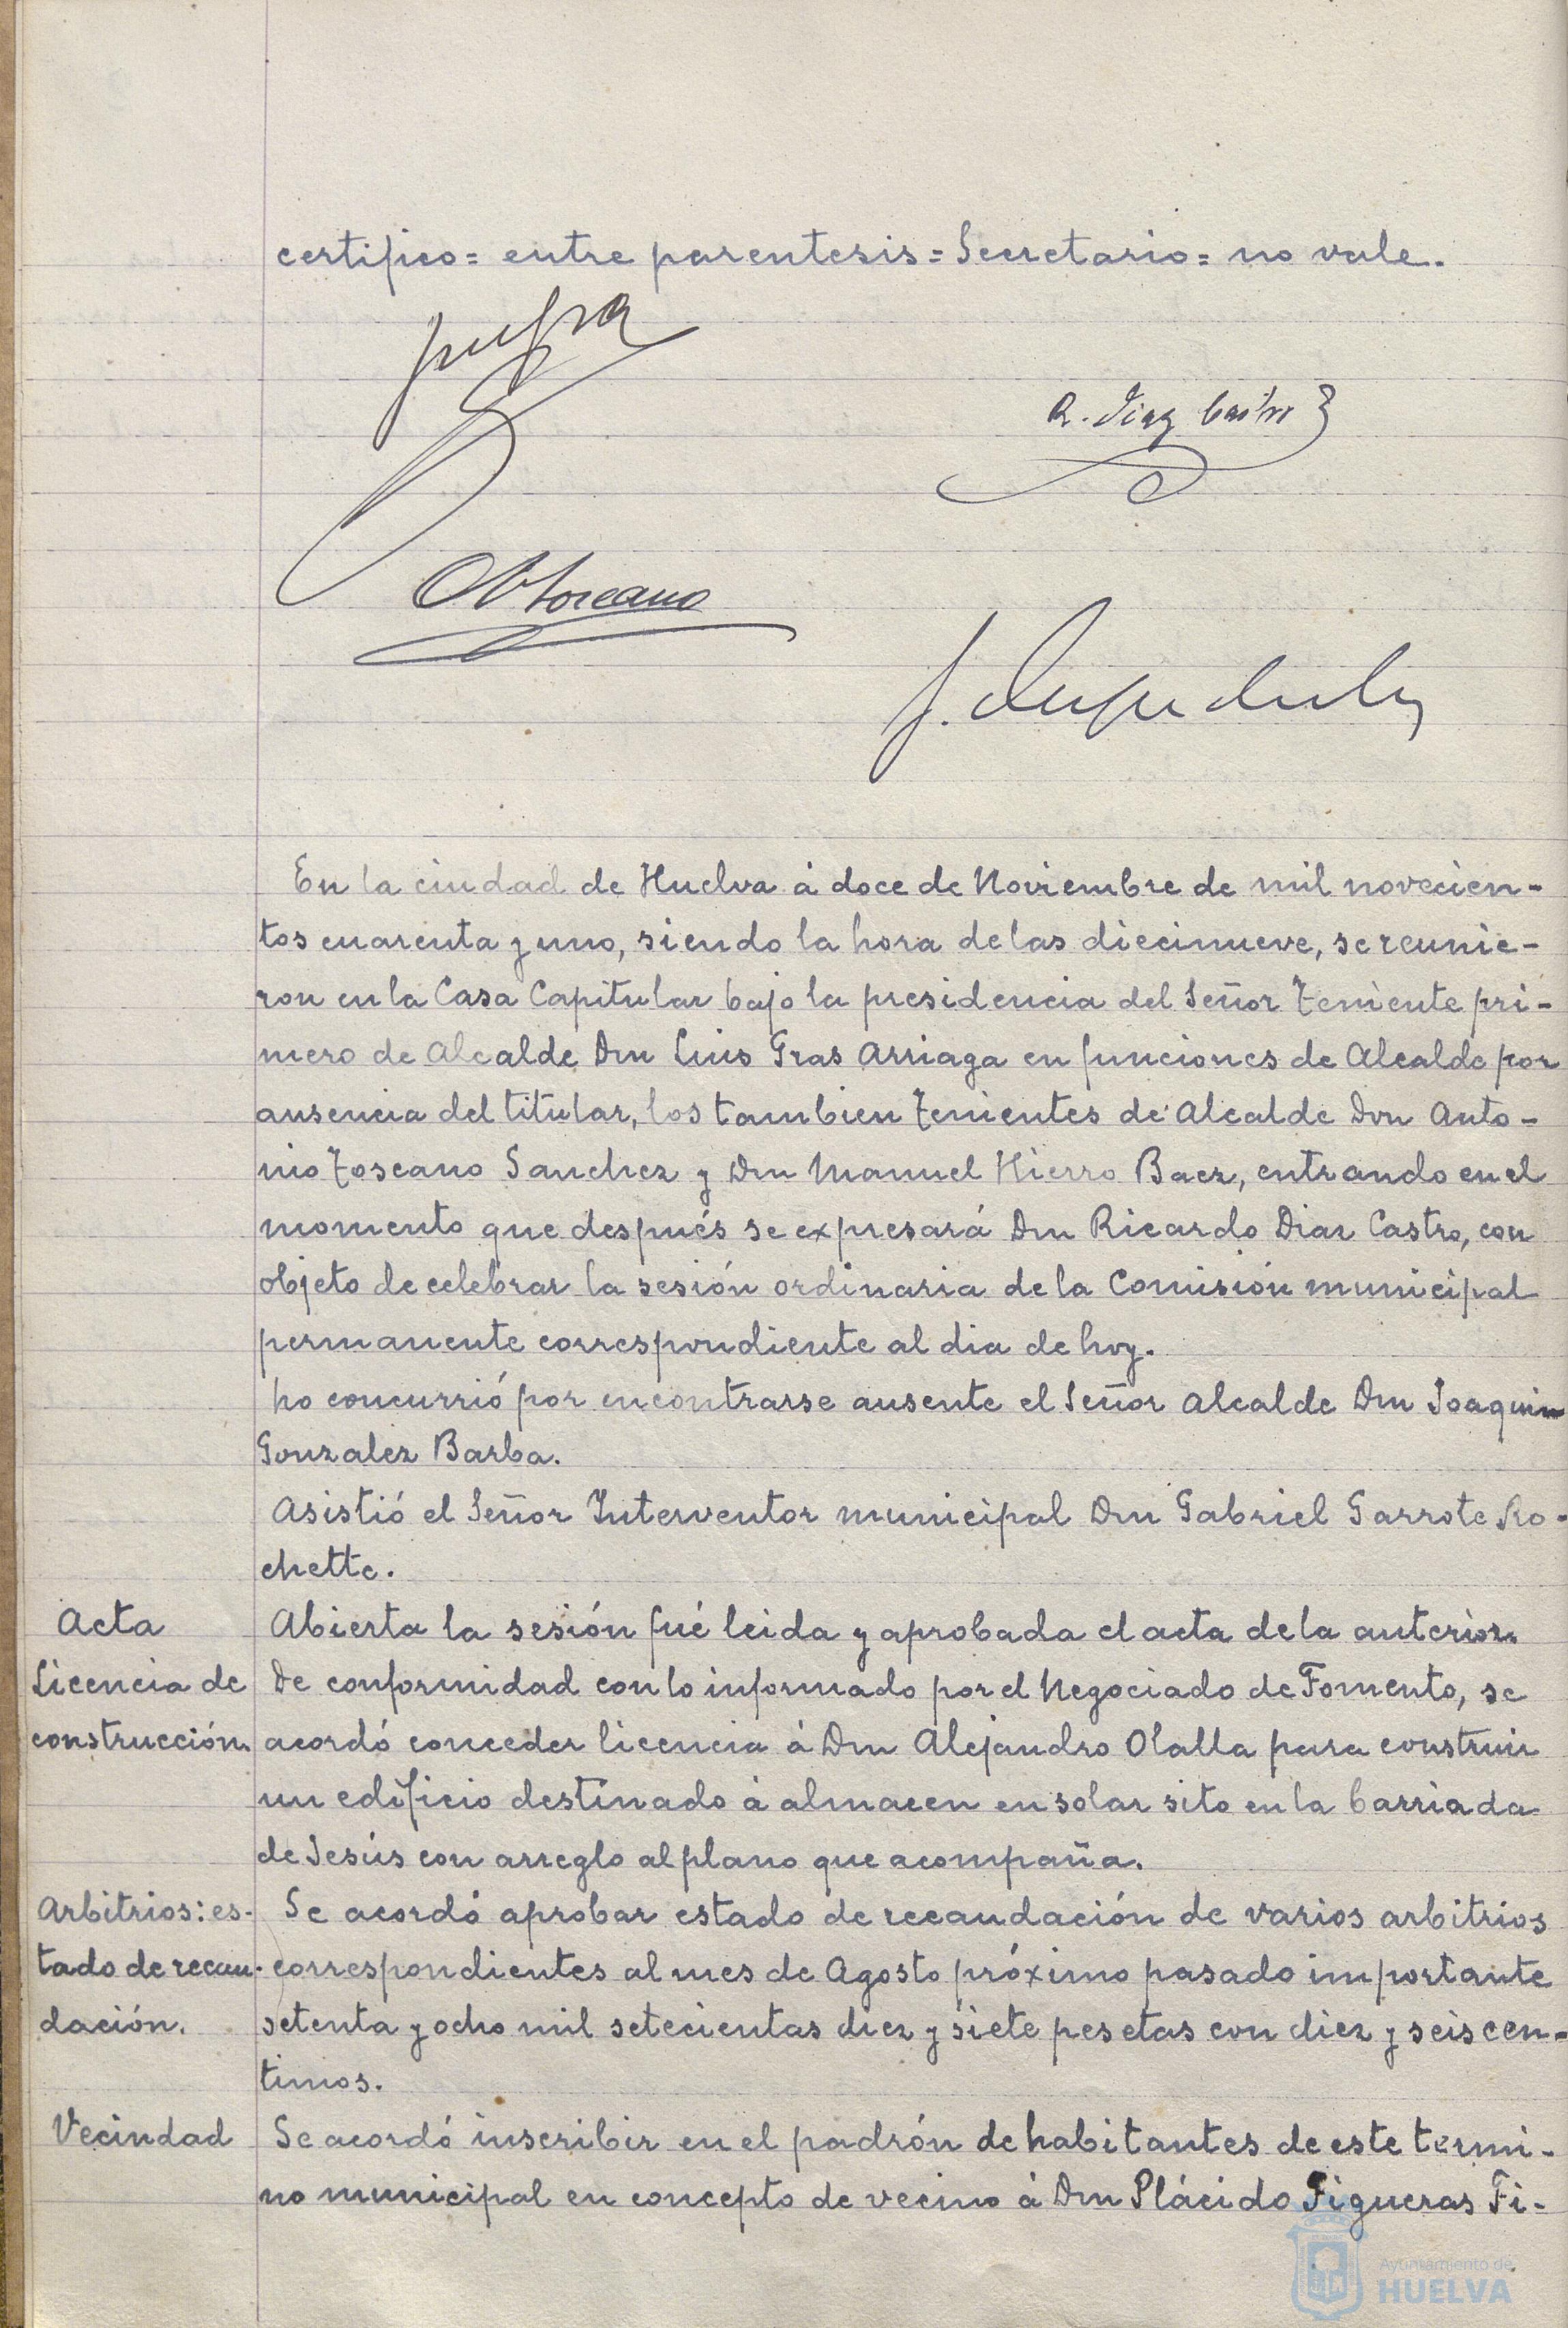 certifico = entre parentesis = Secretario = no vale.
R. Diaz Castro
Toscano
En la ciudad de Huelva à doce de Noviembre de mil novecien-
tos cuarenta y uno, siendo la hora de las diecinueve, se reunie-
ron en la Casa Capitular bajo la presidencia del Señor Teniente pri-
mero de Alcalde Don Luis Gras Arriaga en funciones de Alcalde por
ausencia del titular, los tambien Tenientes de Alcalde Don Anto-
nio Toscano Sanchez y Don Manuel Hierro Baez, entrando en el
momento que después se expresará Don Ricardo Diaz Castro, con
objeto de celebrar la sesión ordinaria de la Comisión municipal
permanente correspondiente al dia de hoy.
No concurrió por encontrarse ausente el Señor Alcalde Don Joaquin
Gonzalez Barba.
Asistió el Señor Interventor municipal Don Gabriel Garrote Ro-
chette.
Acta
Abierta la sesión fué leida y aprobada el acta de la anterior.
Licencia de
construcción.
De conformidad con lo informado por el Negociado de Fomento, se
acordó conceder licencia à Don Alejandro Olalla para construir
un edificio destinado à almacen en solar sito en la barriada
de Jesús con arreglo al plano que acompaña.
Arbitrios: es-
tado de recau-
dación.
Se acordó aprobar estado de recaudación de varios arbitrios
correspondientes al mes de Agosto próximo pasado importante
setenta y ocho mil setecientas diez y siete pesetas con diez y seis cen-
timos.
Vecindad
Se acordó inscribir en el padrón de habitantes de este termi-
no municipal en concepto de vecino à Don Plácido Figueras Fi-
Ayuntamiento de
HUELVA